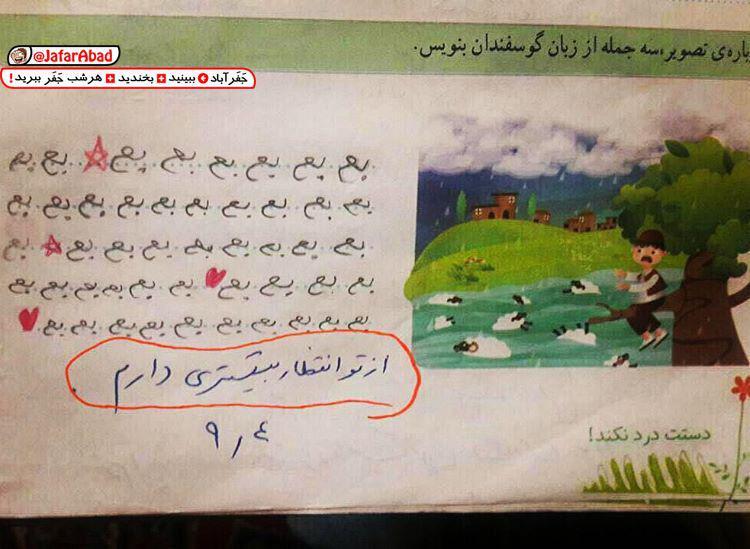 @JafarAbad
جَفرآباد ببینید بخندید هرشب جَفَر ببرید!
باره‌ی تصویر، سه جمله از زبان گوسفندان بنویس.
بع بع بع بع بع بع بع بع
بع بع بع بع بع بع بع بع بع بع
بع بع بع بع بع بع بع بع بع
بع بع بع بع بع بع بع بع بع بع
بع بع بع بع بع بع بع بع بع بع
از تو انتظار بیشتری دارم.
۹٫۴
دستت درد نکند!